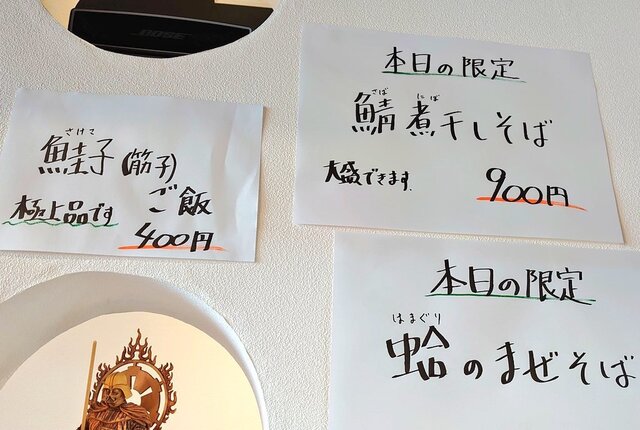 BOSE
さけこ
鮭子(筋子)
ご飯
極上品です
400円
本日の限定
さば にぼ
鯖煮干しそば
大盛できます
900円
本日の限定
はまぐり
蛤のまぜそば